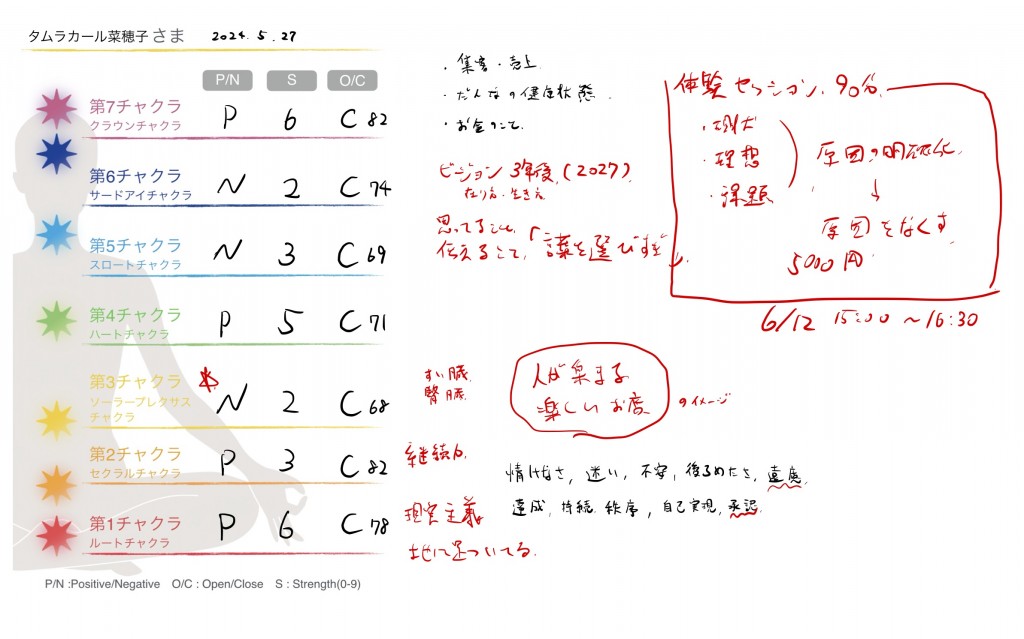 タムラカール菜穂子さま 2024.5.27
P/N S O/C
第7チャクラ
クラウンチャクラ P 6 C 82
第6チャクラ
サードアイチャクラ N 2 C 74
第5チャクラ
スロートチャクラ N 3 C 69
第4チャクラ
ハートチャクラ P 5 C 71
第3チャクラ
ソーラープレクサス
チャクラ N 2 C 68
第2チャクラ
セクラルチャクラ P 3 C 82
第1チャクラ
ルートチャクラ P 6 C 78
P/N :Positive/Negative O/C : Open/Close S : Strength(0-9)
・集客・売上
・だんなの健康状態
・お金のこと
ビージョン 3年後,(2027)
在り方・生き方
思ってること
伝えること,「言葉を選びすぎ」
体験セッション 90分
・現状
・理想
・課題
原因の明確化
↓
原因をなくす
5000円
6/12 15:00 ~16:30
すい臓
腎臓
人が集まる
楽しいお店
のイメージ
継続力
情けなさ, 迷い, 不安, 後ろめたさ, 遠慮
達成, 持続 秩序, 自己実現, 承認
現実主義
地に足ついてる